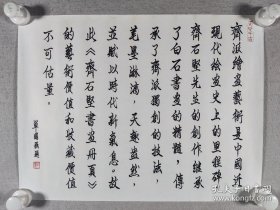 齊派繪畫藝術是中國近
現代繪畫史上的里程碑
齊石堅先生的創作继承
了白石書画的精髓，傳
承了齊派獨創的技法，
笔墨淋漓，天趣盎然，
並賦以時代新氣息。故
此《齊石堅書畫冊頁》
的藝術價值和收藏價值
不可估量。